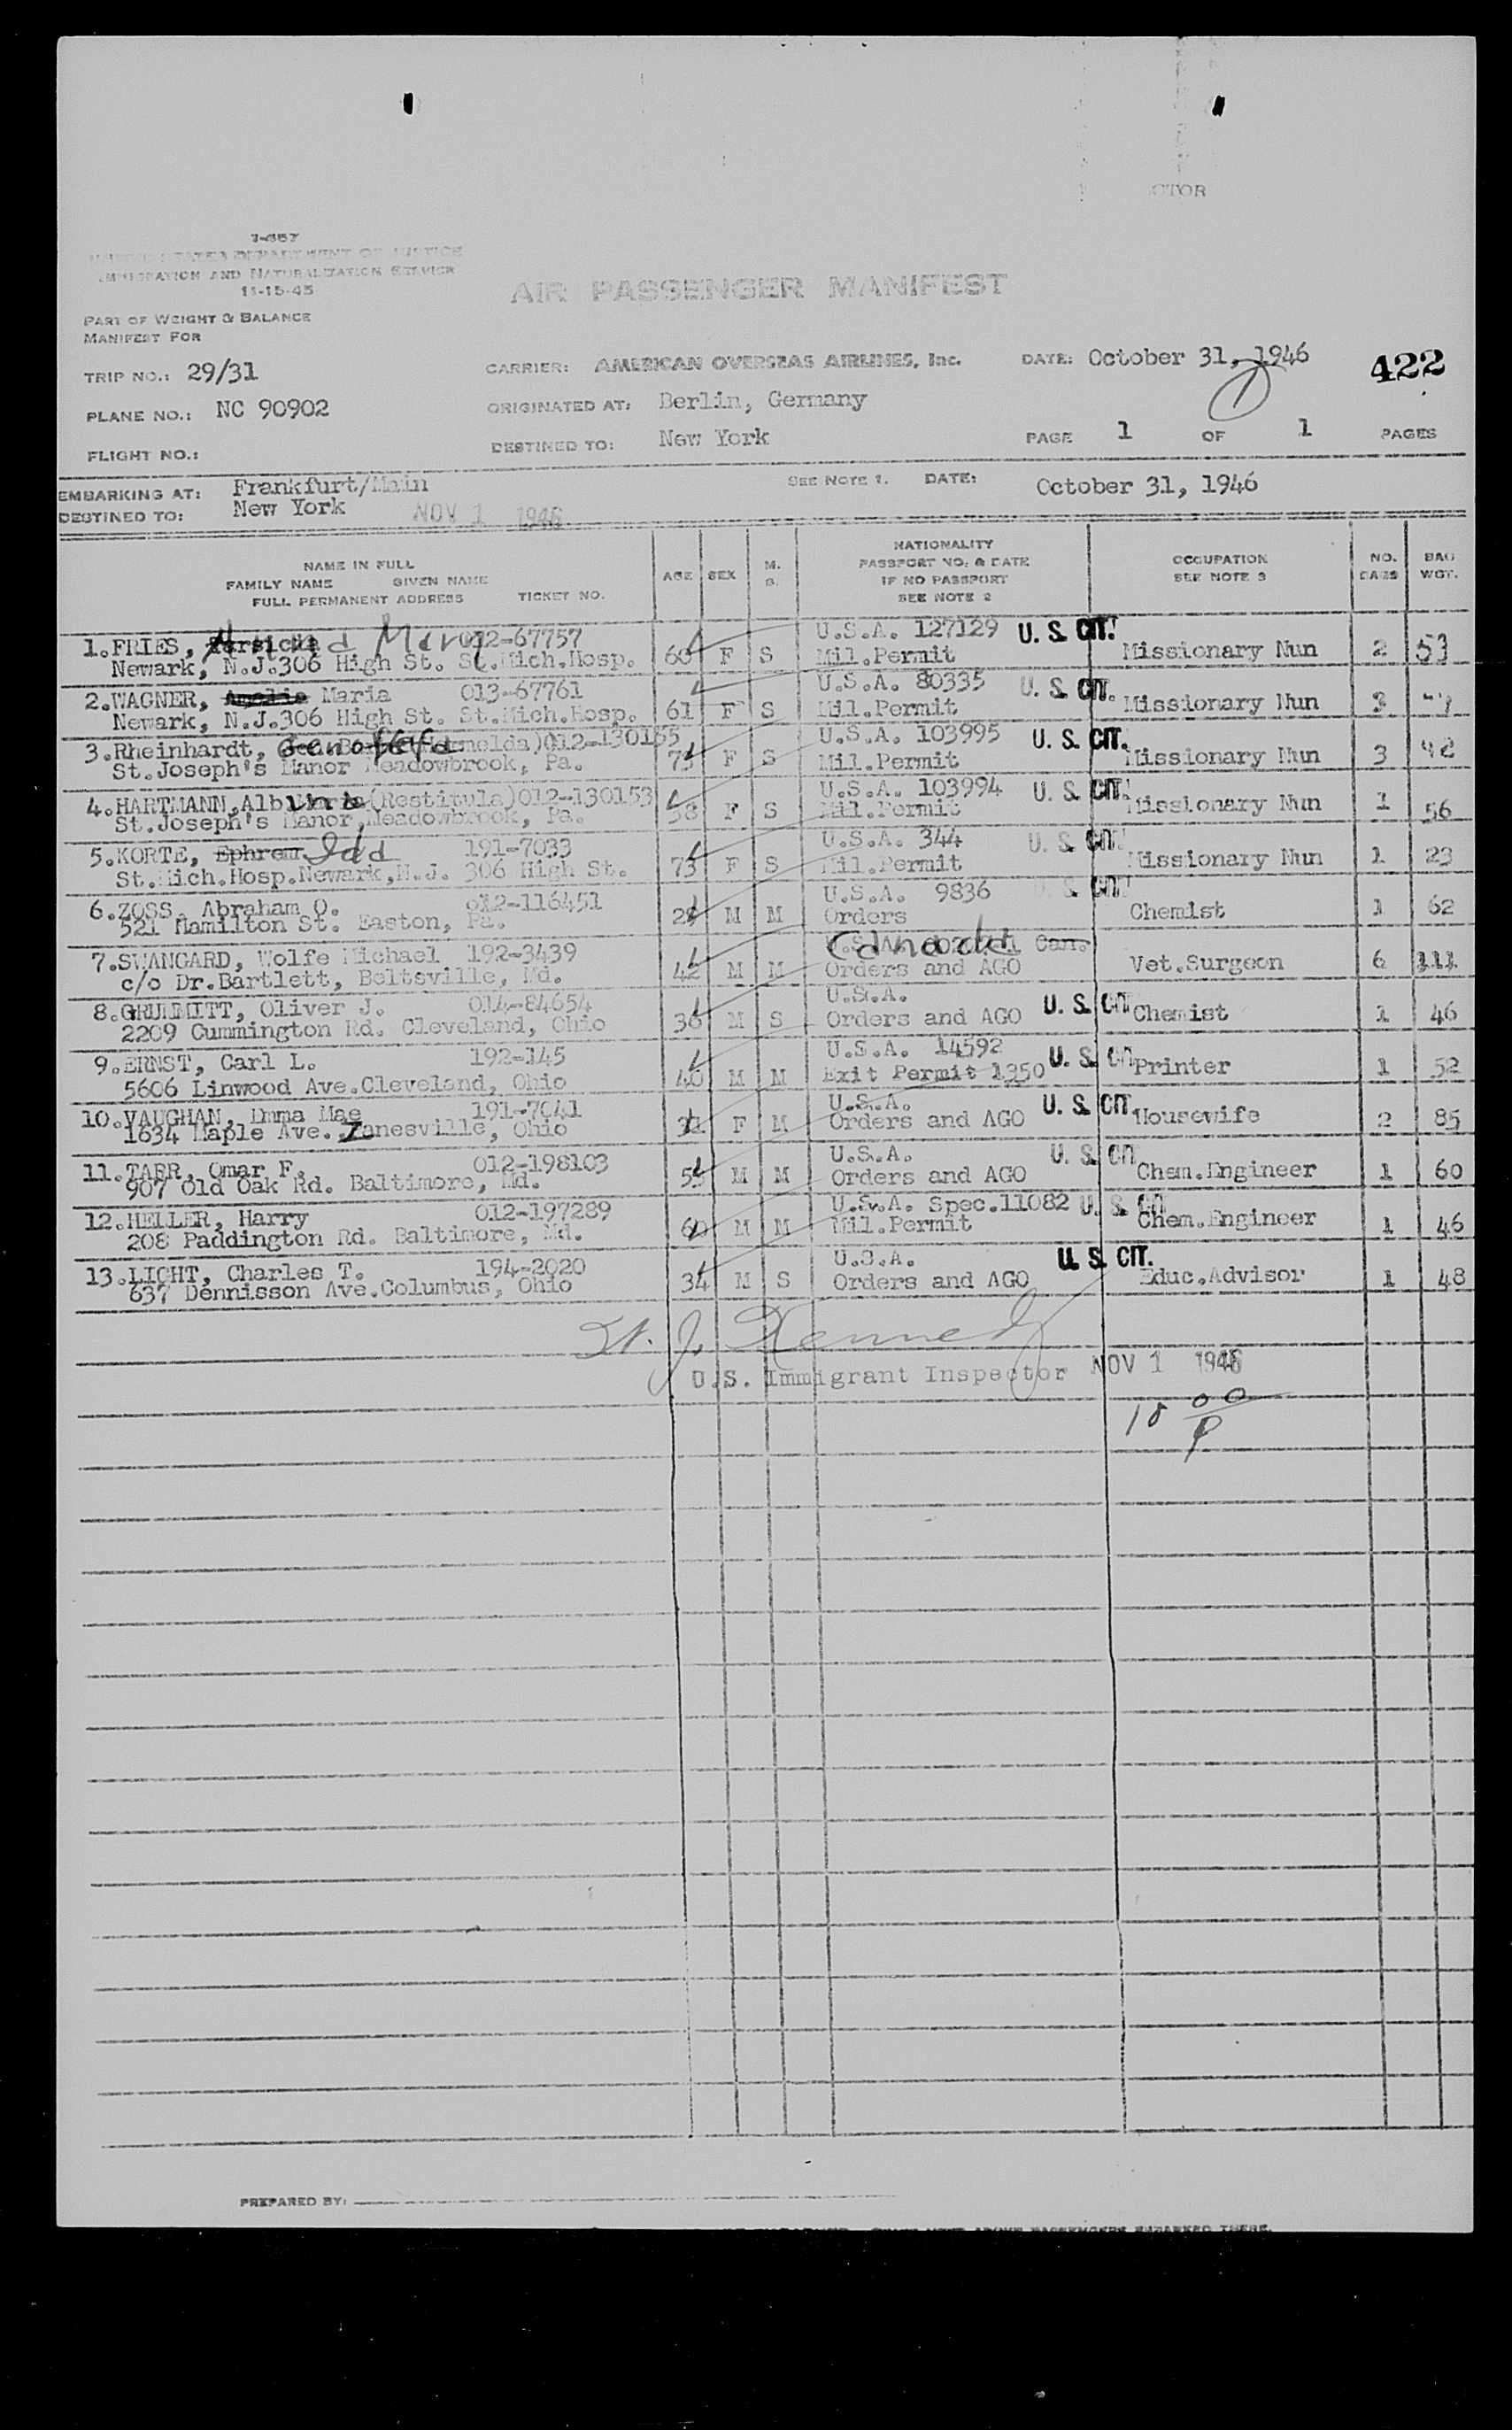 CTOR
I-457
UNITED STATES DEPARTMENT OF JUSTICE
IMMIGRATION AND NATURALIZATION SERVICE
11-15-45
AIR PASSENGER MANIFEST
PART OF WEIGHT & BALANCE
MANIFEST FOR
TRIP NO.: 29/31 CARRIER: AMERICAN OVERSEAS AIRLINES, Inc. DATE: October 31, 1946 422
1
PLANE NO.: NC 90902 ORIGINATED AT: Berlin, Germany
FLIGHT NO.: DESTINED TO: New York PAGE 1 OF 1 PAGES
EMBARKING AT: Frankfurt/Main SEE NOTE 1. DATE: October 31, 1946
DESTINED TO: New York NOV 1 1946
NAME IN FULL FAMILY NAME GIVEN NAME FULL PERMANENT ADDRESS TICKET NO. AGE SEX M. S. NATIONALITY PASSPORT NO. & DATE IF NO PASSPORT SEE NOTE 2 OCCUPATION SEE NOTE 3 NO. BAGS BAG WGT.
1. FRIES, Mary 012-67757 U.S.A. 127129 U. S. CIT.
Newark, N.J. 306 High St. St.Mich.Hosp. 60 F S Mil.Permit Missionary Nun 2 53
2. WAGNER, Amalie Maria 013-67761 U.S.A. 80335 U. S. CIT.
Newark, N.J. 306 High St. St.Mich.Hosp. 61 F S Mil.Permit Missionary Nun 3
3. Rheinhardt, Genofefa 012-130155 U.S.A. 103995 U. S. CIT.
St.Joseph's Manor Meadowbrook, Pa. 73 F S Mil.Permit Missionary Nun 3 42
4. HARTMANN, Albina (Restitula) 012-130153 U.S.A. 103994 U. S. CIT.
St.Joseph's Manor, Meadowbrook, Pa. 58 F S Mil.Permit Missionary Nun 1 56
5. KORTE, Ephrem Ida 191-7033 U.S.A. 344 U. S. CIT.
St.Mich.Hosp.Newark, N.J. 306 High St. 73 F S Mil.Permit Missionary Nun 1 23
6. ZOSS, Abraham O. 012-116451 U.S.A. 9836 U. S. CIT.
521 Hamilton St. Easton, Pa. M M Orders Chemist 1 62
7. SWANGARD, Wolfe Michael 192-3439 Canada Can.
c/o Dr.Bartlett, Beltsville, Md. 42 M M Orders and AGO Vet.Surgeon 6 111
8. GRUMMITT, Oliver J. 014-84654 U.S.A. U. S. CIT
2209 Cummington Rd. Cleveland, Ohio 36 M S Orders and AGO Chemist 1 46
9. ERNST, Carl L. 192-145 U.S.A. 14592 U. S. CIT
5606 Linwood Ave.Cleveland, Ohio 40 M M Exit Permit 1350 Printer 1 52
10. VAUGHAN, Emma Mae 191-7041 U.S.A. U. S. CIT.
1634 Maple Ave. Zanesville, Ohio F M Orders and AGO Housewife 2 85
11. TARR, Omar F. 012-198103 U.S.A. U. S. CIT
907 Old Oak Rd. Baltimore, Md. 55 M M Orders and AGO Chem.Engineer 1 60
12. HELLER, Harry 012-197289 U.S.A. Spec.11082 U. S. CIT
208 Paddington Rd. Baltimore, Md. 60 M M Mil.Permit Chem.Engineer 1 46
13. LICHT, Charles T. 194-2020 U.S.A. U. S. CIT.
637 Dennisson Ave.Columbus, Ohio 34 M S Orders and AGO Educ.Advisor 1 48
Kennedy
U.S. Immigrant Inspector NOV 1 1946
18 00
P
PREPARED BY: